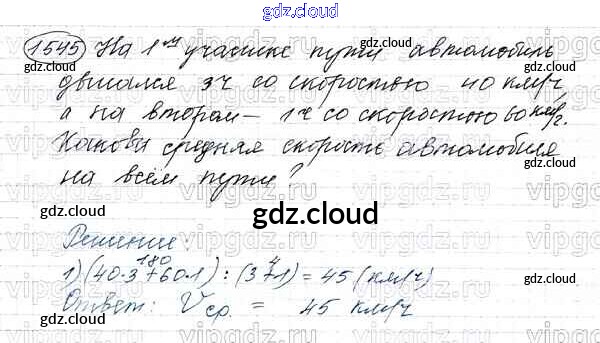 gdz.cloud
1545 На 1ᵐ участке пути автомобиль
двигался 3ч со скоростью 40 км/ч,
а на втором – 1ч со скоростью 60 км/ч.
Какова средняя скорость автомобиля
на всём пути?
gdz.cloud
gdz.cloud
gdz.cloud
Решение:
180 4
1) (40·3+60·1) : (3+1) = 45 (км/ч)
Ответ: Vср. = 45 км/ч
gdz.cloud
gdz.cloud